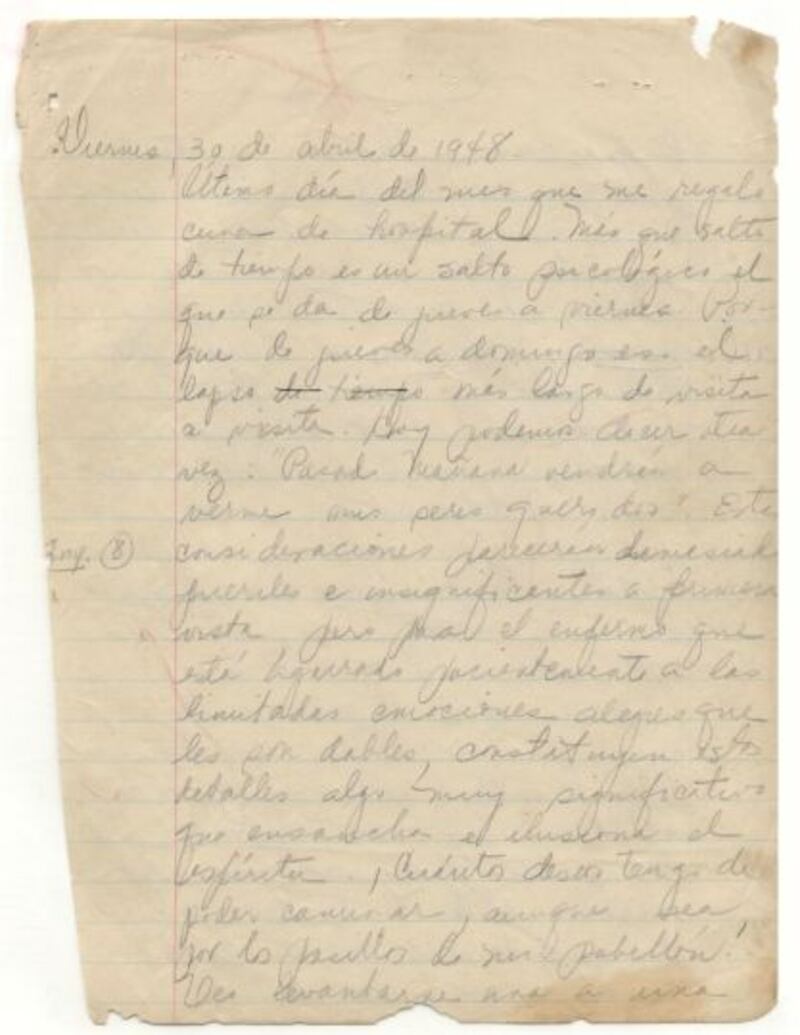 Viernes, 30 de abril de 1948.
Útimo día del mes que me regala
cama de hospital. Más que salto
de tiempo es un salto psicológico el
que se da de jueves a viernes. Por-
que de jueves a domingo es el
lapso de tiempo más largo de visita
a visita. Hoy podemos decir otra
vez: "Pasado mañana vendrán a
verme mis seres queridos". Estas
Iny. (8) consideraciones parecerán demasiado
pueriles e insignificantes a primera
vista pero para el enfermo que
está aguerrado pacientemente a las
limitadas emociones alegres que
les son dables, constituyen estos
detalles algo muy significativo
que ensancha e ilusiona el
espíritu. ¡Cuántos deseos tengo de
poder caminar, aunque sea
por los pasillos de mi pabellón!
Veo levantarse una a una